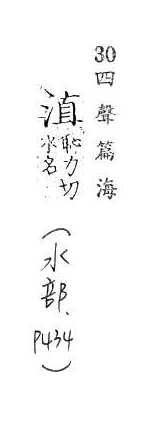 30 四聲篇海
淔 恥力切
水名
(水部. P434)